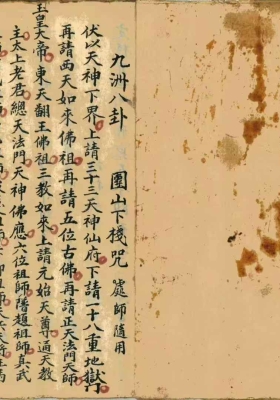 九洲八卦 圍山下棧咒 處師隨用
伏以天神下界上請三十三天神仙府下請一十八重地獄
再請西天如來佛祖再請五位古佛再請正天法門天師
玉皇大帝東天翻王佛祖三教如來上請元始天尊逼天教
主太上老君總天法門天神佛應六位祖師陰趙祖師真武